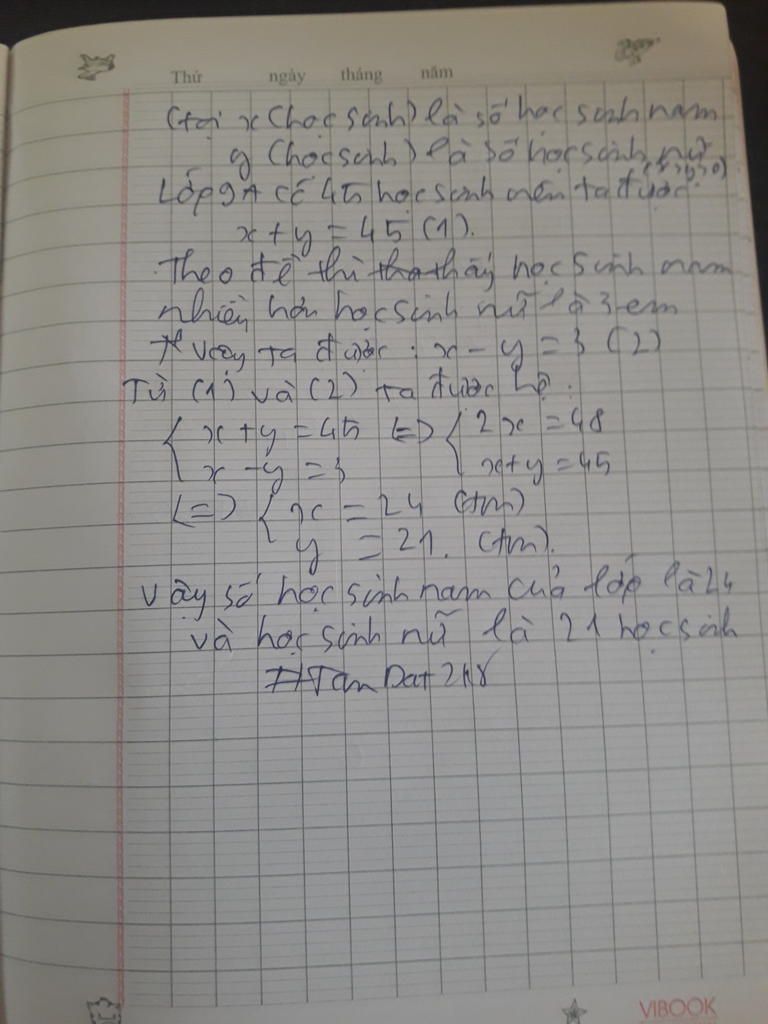 Thứ ngày tháng năm
Gọi x (học sinh) là số học sinh nam
y (học sinh) là số học sinh nữ
(x>y>0)
Lớp 9A có 45 học sinh nên ta được:
x + y = 45 (1).
Theo đề thì thấy học sinh nam
nhiều hơn học sinh nữ là 3 em
Vậy ta được : x - y = 3 (2)
Từ (1) và (2) ta được hệ :
{ x + y = 45 <=> { 2x = 48
{ x - y = 3 { x+y = 45
<=> { x = 24 (tm)
{ y = 21. (tm).
Vậy số học sinh nam của lớp là 24
và học sinh nữ là 21 học sinh
VIBOOK